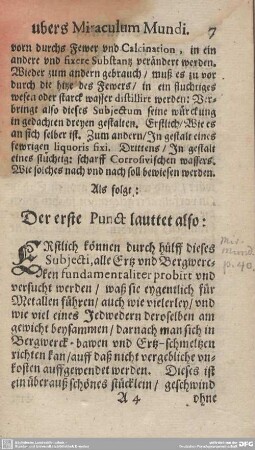 ubers Miraculum Mundi. 7
vorn durchs Fewer vnd Calcination, in ein
andere vnd fixere Substantz verändert werden.
Wieder zum andern gebrauch / muß es zu vor
durch die hitze des Fewers / in ein fluchtiges
wesen oder starck wasser distillirt werden: Ver-
bringt also dieses Subjectum seine würckung
in gedachten dreyen gestalten. Erstlich / Wie es
an sich selber ist. Zum andern / In gestalt eines
fewrigen liquoris fixi. Drittens / In gestalt
eines flüchtig: scharff Corrosivischen wassers.
Wie solches nach vnd nach soll bewiesen werden.
Als folgt:
Der erste Punct lauttet also:
ERstlich können durch hülff dieses
Subjecti, alle Ertz vnd Bergwerc-
ken fundamentaliter probirt vnd
versucht werden / waß sie eygentlich für
Metallen führen / auch wie vielerley / vnd
wie viel eines Jedwedern deroselben am
gewicht beysammen / darnach man sich in
Bergwerck-bawen vnd Ertz-schmeltzen
richten kan / auff daß nicht vergebliche vn-
kosten auffgewendet werden. Dieses ist
ein überauß schönes stücklein / geschwind
A 4 ohne